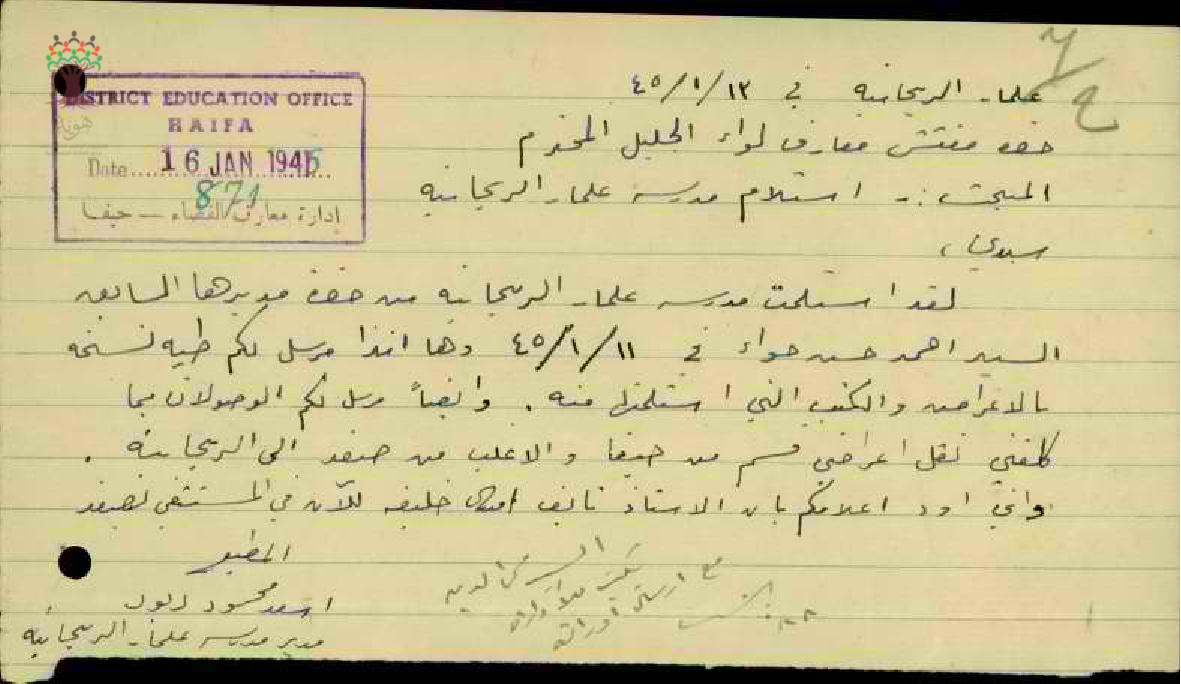 علما والريحانيه في ١٣/١/٤٥
حضرة مفتش معارف لواء الجليل المحترم
المبحث :- استلام مدرسة علما والريحانيه
سيدي ،
لقد استلمت مدرسه علما والريحانيه من حضرة مديرها السابق
السيد احمد حسن حواء في ١١/١/٤٥ وها انذا مرسل لكم طيه نسخه
بالاغراض والكتب التي استلمتها منه . وايضاً مرسل لكم الوصولات بما
كلفني نقل اغراضي قسم من حيفا والاغلب من صفد الى الريحانيه .
واني اود اعلامكم بان الاستاذ نايف خليفه للآن في المستشفى بصفد
المطيع
اسعد محمود
مدير مدرسه علما والريحانيه
DISTRICT EDUCATION OFFICE
HAIFA
Date 16 JAN 1945
871
إدارة معارف القضاء — حيفا
هوية